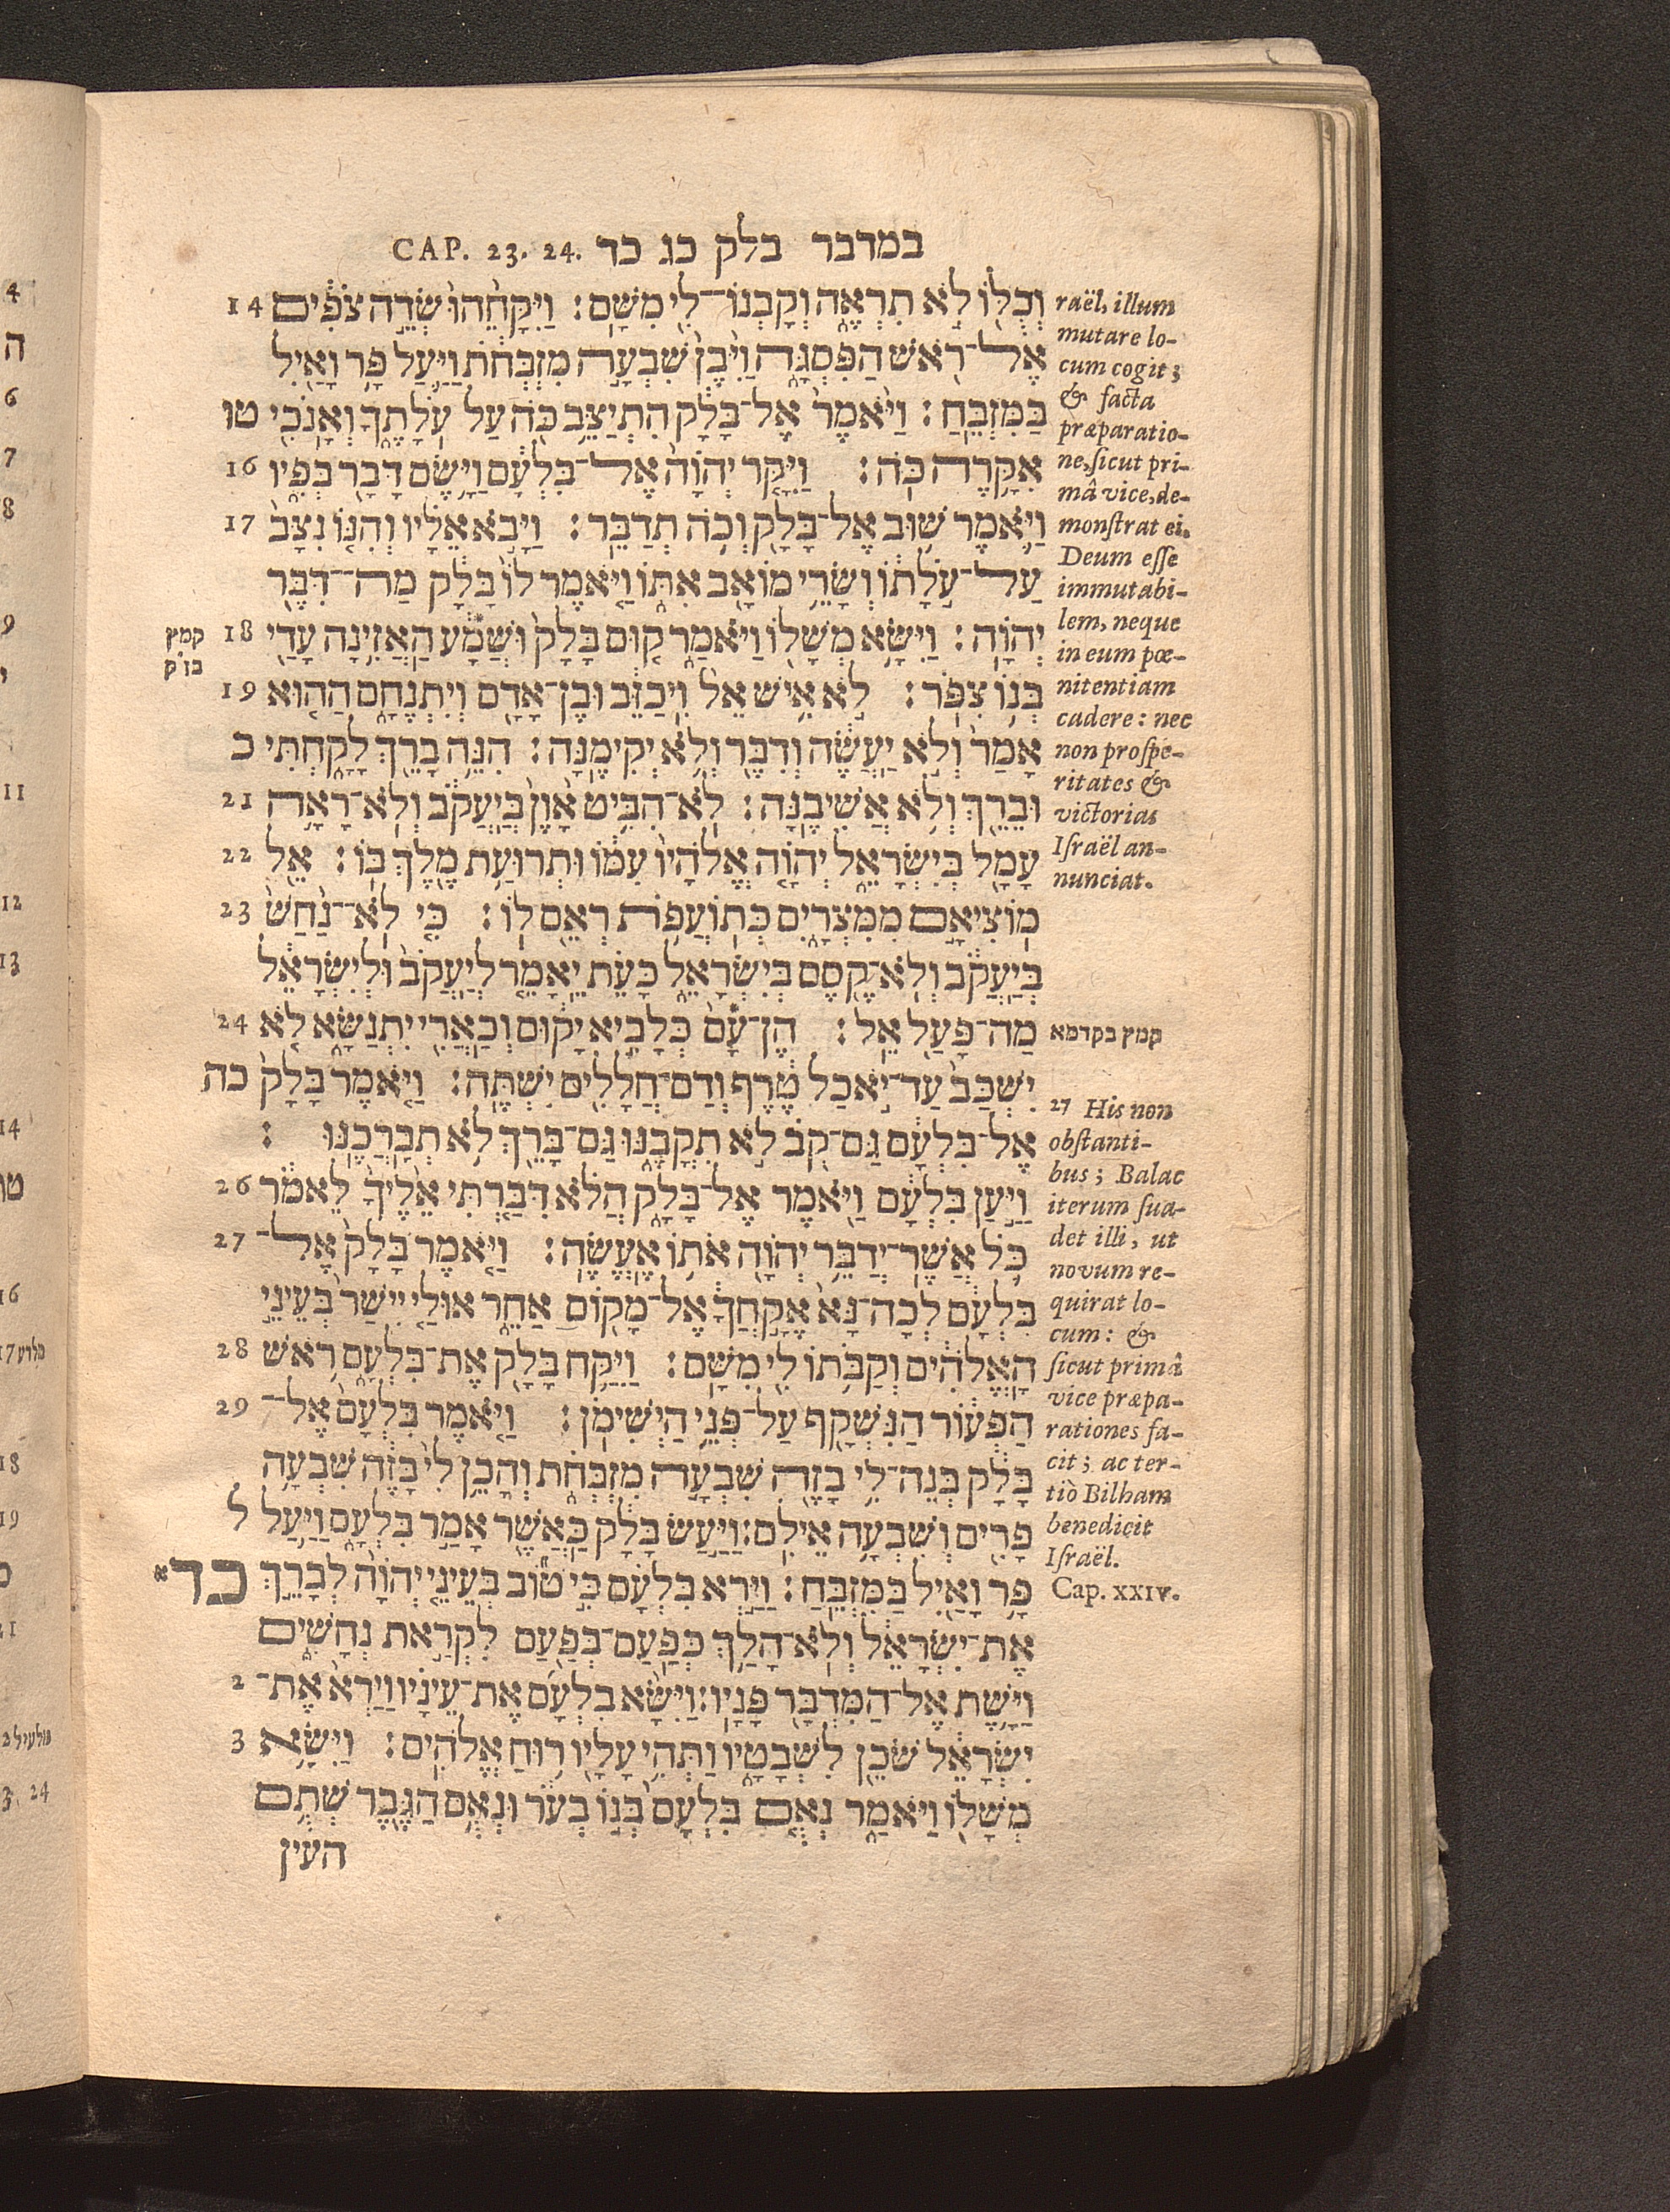 במדבר בלק כג כד CAP. 23. 24.
וְכֻלּ֖וֹ לֹ֣א תִרְאֶ֑ה וְקָבְנוֹ־לִ֖י מִשָּֽׁם׃ וַיִּקָּחֵ֙הוּ֙ שְׂדֵ֣ה צֹפִ֔ים 14
אֶל־רֹ֖אשׁ הַפִּסְגָּ֑ה וַיִּ֙בֶן֙ שִׁבְעָ֣ה מִזְבְּחֹ֔ת וַיַּ֛עַל פָּ֥ר וָאַ֖יִל
בַּמִּזְבֵּֽחַ׃ וַיֹּ֙אמֶר֙ אֶל־בָּלָ֔ק הִתְיַצֵּ֥ב כֹּ֖ה עַל עֹֽלָתֶ֑ךָ וְאָֽנֹכִ֖י טו
אִקָּ֥רֶה כֹּֽה׃ וַיִּקָּ֤ר יְהוָֹה֙ אֶל־בִּלְעָ֔ם וַיָּ֥שֶׂם דָּבָ֖ר בְּפִ֑יו 16
וַיֹּ֛אמֶר שׁ֥וּב אֶל־בָּלָ֖ק וְכֹ֥ה תְדַבֵּֽר׃ וַיָּבֹ֣א אֵלָ֗יו וְהִנּ֤וֹ נִצָּב֙ 17
עַל־עֹ֣לָת֔וֹ וְשָׂרֵ֥י מוֹאָ֖ב אִתּ֑וֹ וַיֹּ֤אמֶר לוֹ֙ בָּלָ֔ק מַה־דִּבֶּ֖ר
יְהוָֹֽה׃ וַיִּשָּׂ֥א מְשָׁל֖וֹ וַיֹּאמַ֑ר ק֤וּם בָּלָק֙ וּֽשֲׁמָ֔ע הַאֲזִ֥ינָה עָדַ֖י 18
קמץ
בז״ק
בְּנ֥וֹ צִפֹּֽר׃ לֹ֣א אִ֥ישׁ אֵל֙ וִֽיכַזֵּ֔ב וּבֶן־אָדָ֖ם וְיִתְנֶחָ֑ם הַה֤וּא 19
אָמַר֙ וְלֹ֣א יַעֲשֶׂ֔ה וְדִבֶּ֖ר וְלֹ֥א יְקִימֶֽנָּה׃ הִנֵּ֥ה בָרֵ֖ךְ לָקָ֑חְתִּי כ
וּבֵרֵ֖ךְ וְלֹ֥א אֲשִׁיבֶֽנָּה׃ לֹֽא־הִבִּ֥יט אָ֙וֶן֙ בְּיַעֲקֹ֔ב וְלֹא־רָאָ֥ה 21
עָמָ֖ל בְּיִשְׂרָאֵ֑ל יְהוָֹ֤ה אֱלֹהָיו֙ עִמּ֔וֹ וּתְרוּעַ֥ת מֶ֖לֶךְ בּֽוֹ׃ אֵ֖ל 22
מֽוֹצִיאָ֣ם מִמִּצְרָ֑יִם כְּתוֹעֲפֹ֥ת רְאֵ֖ם לֽוֹ׃ כִּ֤י לֹֽא־נַ֙חַשׁ֙ 23
בְּיַֽעֲקֹ֔ב וְלֹא־קֶ֖סֶם בְּיִשְׂרָאֵ֑ל כָּעֵ֗ת יֵאָמֵ֤ר לְיַֽעֲקֹב֙ וּלְיִשְׂרָאֵ֔ל
מַה־פָּ֖עַל אֵֽל׃ הֶן־עָם֙ כְּלָבִ֣יא יָק֔וּם וְכַֽאֲרִ֖י יִתְנַשָּׂ֑א לֹ֤א 24
יִשְׁכַּב֙ עַד־יֹ֣אכַל טֶ֔רֶף וְדַם־חֲלָלִ֖ים יִשְׁתֶּֽה׃ וַיֹּ֤אמֶר בָּלָק֙ כה
אֶל־בִּלְעָ֔ם גַּם־קֹ֖ב לֹ֣א תִקֳּבֶ֑נּוּ גַּם־בָּרֵ֖ךְ לֹ֥א תְבָרְכֶֽנּוּ׃
וַיַּ֣עַן בִּלְעָ֔ם וַיֹּ֖אמֶר אֶל־בָּלָ֑ק הֲלֹ֗א דִּבַּ֤רְתִּי אֵלֶ֙יךָ֙ לֵאמֹ֔ר 26
כֹּ֛ל אֲשֶׁר־יְדַבֵּ֥ר יְהוָֹ֖ה אֹת֥וֹ אֶעֱשֶֽׂה׃ וַיֹּ֤אמֶר בָּלָק֙ אֶל־ 27
בִּלְעָ֔ם לְכָה־נָּא֙ אֶקָּ֣חֲךָ֔ אֶל־מָק֖וֹם אַחֵ֑ר אוּלַ֤י יִישַׁר֙ בְּעֵינֵ֣י
הָֽאֱלֹהִ֔ים וְקַבֹּ֥תוֹ לִ֖י מִשָּֽׁם׃ וַיִּקַּ֥ח בָּלָ֖ק אֶת־בִּלְעָ֑ם רֹ֣אשׁ 28
הַפְּע֔וֹר הַנִּשְׁקָ֖ף עַל־פְּנֵ֥י הַיְשִׁימֹֽן׃ וַיֹּ֤אמֶר בִּלְעָם֙ אֶל־ 29
בָּלָ֔ק בְּנֵה־לִ֥י בָזֶ֖ה שִׁבְעָ֣ה מִזְבְּחֹ֑ת וְהָכֵ֥ן לִי֙ בָּזֶ֔ה שִׁבְעָ֥ה
פָרִ֖ים וְשִׁבְעָ֥ה אֵילִֽם׃ וַיַּ֣עַשׂ בָּלָ֔ק כַּאֲשֶׁ֖ר אָמַ֣ר בִּלְעָ֑ם וַיַּ֛עַל ל
פָּ֥ר וָאַ֖יִל בַּמִּזְבֵּֽחַ׃ וַיַּ֣רְא בִּלְעָ֗ם כִּ֣י ט֞וֹב בְּעֵינֵ֤י יְהוָֹה֙ לְבָרֵ֣ךְ כד א
אֶת־יִשְׂרָאֵ֔ל וְלֹֽא־הָלַ֥ךְ כְּפַֽעַם־בְּפַ֖עַם לִקְרַ֣את נְחָשִׁ֑ים
וַיָּ֥שֶׁת אֶל־הַמִּדְבָּ֖ר פָּנָֽיו׃ וַיִּשָּׂ֨א בִלְעָ֜ם אֶת־עֵינָ֗יו וַיַּרְא֙ אֶת־ 2
יִשְׂרָאֵ֔ל שֹׁכֵ֖ן לִשְׁבָטָ֑יו וַתְּהִ֥י עָלָ֖יו ר֥וּחַ אֱלֹהִֽים׃ וַיִּשָּׂ֥א 3
מְשָׁל֖וֹ וַיֹּאמַ֑ר נְאֻ֤ם בִּלְעָם֙ בְּנ֣וֹ בְעֹ֔ר וּנְאֻ֥ם הַגֶּ֖בֶר שְׁתֻ֥ם
העין
raël, illum
mutare lo-
cum cogit;
& facta
præparatio-
ne, sicut pri-
mâ vice, de-
monſtrat ei.
Deum eſſe
immutabi-
lem, neque
in eum pœ-
nitentiam
cadere: nec
non proſpe-
ritates &
victorias
Iſraël an-
nunciat.
קמץ בקדמא
27 His non
obſtanti-
bus; Balac
iterum ſua-
det illi, ut
novum re-
quirat lo-
cum: &
ſicut primâ
vice præpa-
rationes fa-
cit; ac ter-
tiò Bilham
benedicit
Iſraël.
Cap. XXIV.
4
ה
6
7
8
9
י
11
12
13
14
טו
16
17 מלרע
18
19
21
2 מלעיל
3. 24